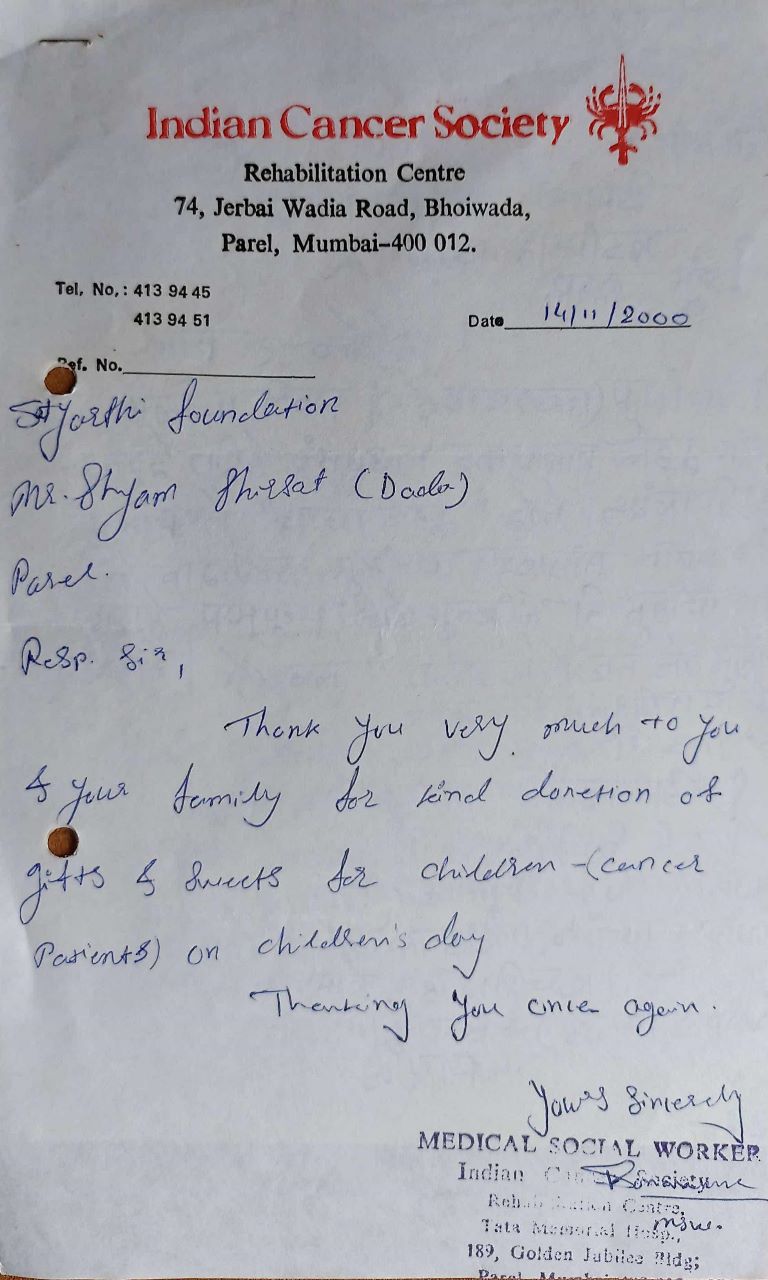 Indian Cancer Society
Rehabilitation Centre
74, Jerbai Wadia Road, Bhoiwada,
Parel, Mumbai–400 012.
Tel. No.: 413 94 45
413 94 51
Date 14/11/2000
Ref. No.
Satyarthi foundation
Mr. Shyam Shirsat (Dada)
Parel.
Resp. Sir,
Thank you very much to you
& your family for kind donetion of
gifts & Sweets for children - (cancer
Patients) on children's day
Thanking you once again.
Yours Sincerely
MEDICAL SOCIAL WORKER
Indian Cancer Society
Rehabilitation Centre,
Tata Memorial Hosp.,
189, Golden Jubilee Bldg;
Parel, Mumbai